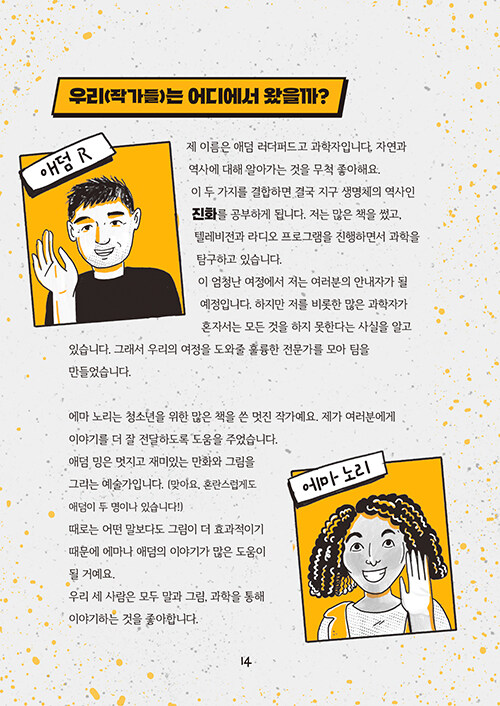 우리(작가들)는 어디에서 왔을까?
애덤 R
제 이름은 애덤 러더퍼드고 과학자입니다. 자연과
역사에 대해 알아가는 것을 무척 좋아해요.
이 두 가지를 결합하면 결국 지구 생명체의 역사인
진화를 공부하게 됩니다. 저는 많은 책을 썼고,
텔레비전과 라디오 프로그램을 진행하면서 과학을
탐구하고 있습니다.
이 엄청난 여정에서 저는 여러분의 안내자가 될
예정입니다. 하지만 저를 비롯한 많은 과학자가
혼자서는 모든 것을 하지 못한다는 사실을 알고
있습니다. 그래서 우리의 여정을 도와줄 훌륭한 전문가를 모아 팀을
만들었습니다.
에마 노리는 청소년을 위한 많은 책을 쓴 멋진 작가예요. 제가 여러분에게
이야기를 더 잘 전달하도록 도움을 주었습니다.
애덤 밍은 멋지고 재미있는 만화와 그림을
그리는 예술가입니다. (맞아요, 혼란스럽게도
애덤이 두 명이나 있습니다!)
때로는 어떤 말보다도 그림이 더 효과적이기
때문에 에마나 애덤의 이야기가 많은 도움이
될 거예요.
우리 세 사람은 모두 말과 그림, 과학을 통해
이야기하는 것을 좋아합니다.
에마 노리
14